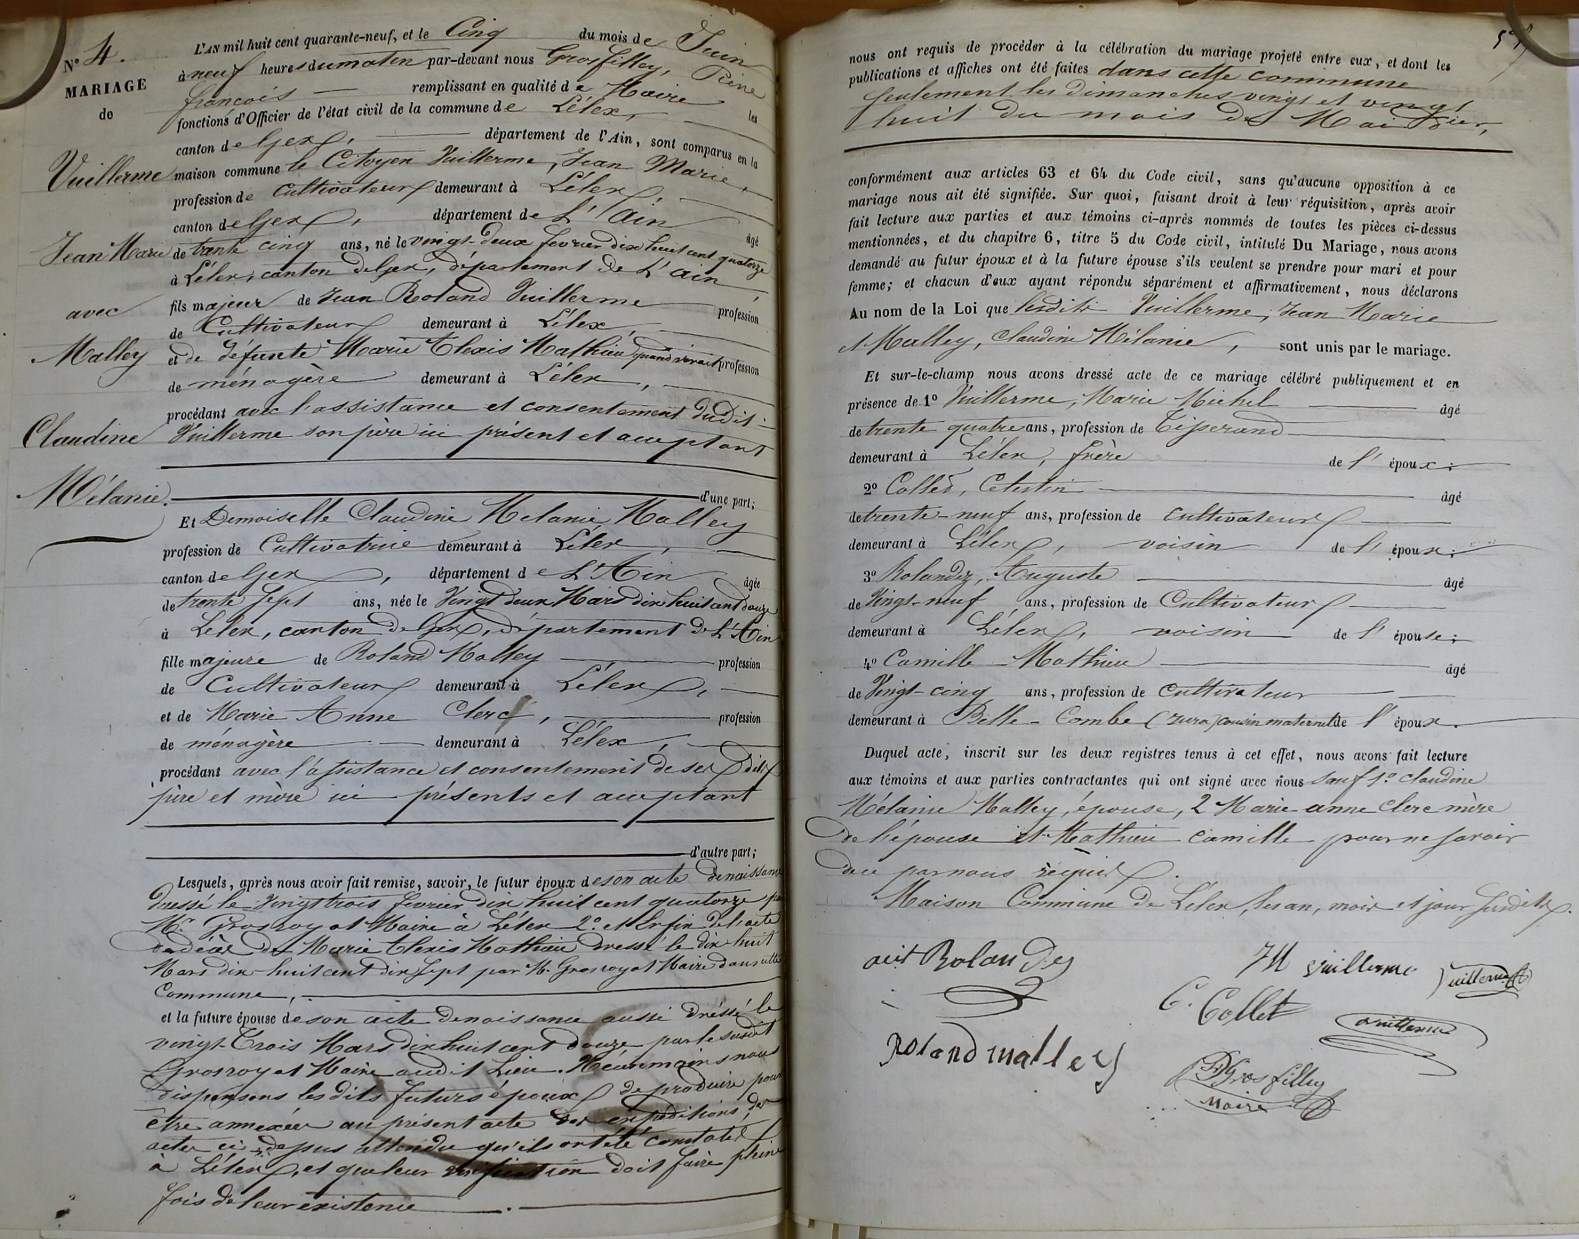 N° 4.
MARIAGE
de
Vuillerme
Jean Marie
avec
Malley
Claudine
Mélanie.
L'AN mil huit cent quarante-neuf, et le Cinq du mois de Juin
à neuf heures du matin par-devant nous Grosfilley, Pierre
francois remplissant en qualité de Maire les
fonctions d'Officier de l'état civil de la commune de Lélex,
canton de Gex, département de l'Ain, sont comparus en la
maison commune le Citoyen Vuillerme, Jean Marie,
profession de Cultivateur demeurant à Lélex,
canton de Gex, département de L'Ain âgé
de trente cinq ans, né le vingt-deux fevrier dix huit cent quatorze
à Lélex, canton de Gex, département de L'ain,
fils majeur de Jean Roland Vuillerme profession
de Cultivateur demeurant à Lélex,
et de défunte Marie Thaïs Mathieu quand vivait profession
de ménagère demeurant à Lélex,
procédant avec l'assistance et consentement dudit
Vuillerme son père ici présent et acceptant
d'une part;
Et Demoiselle Claudine Mélanie Malley
profession de Cultivatrice demeurant à Lélex,
canton de Gex, département de L'Ain âgée
de trente sept ans, née le Vingt deux Mars dix huit cent douze
à Lélex, canton de Gex, département de L'Ain
fille majeure de Roland Malley profession
de Cultivateur demeurant à Lélex,
et de Marie Anne Clerc, profession
de ménagère demeurant à Lélex,
procédant avec l'assistance et consentement de ses dits
père et mère ici présents et acceptant
d'autre part;
Lesquels, après nous avoir fait remise, savoir, le futur époux de son acte de naissance
dressé le Vingt trois fevrier dix huit cent quatorze par
Mr Grosroyat Maire à Lélex 2° et Enfin de l'acte
de décès de Marie Thaïs Mathieu dressé le dix huit
Mars dix-huit cent dix sept par Mr Grosroyat Maire dans cette
Commune,
et la future épouse de son acte de naissance aussi dressé le
vingt-Trois Mars dix huit cent douze par le susdit
Grosroyat Maire audit Lieu. Néanmoins nous
dispensons les dits futurs époux de produire pour
être annexées au présent acte des expéditions des
actes ci-dessus attendu qu'ils ont été constatés
à Lélex, et que leur vérification doit faire pleine
fois de leur existence.
nous ont requis de procéder à la célébration du mariage projeté entre eux, et dont les
publications et affiches ont été faites dans cette commune
seulement les dimanches vingt et vingt
huit du mois de Mai d'rier,
conformément aux articles 63 et 64 du Code civil, sans qu'aucune opposition à ce
mariage nous ait été signifiée. Sur quoi, faisant droit à leur réquisition, après avoir
fait lecture aux parties et aux témoins ci-après nommés de toutes les pièces ci-dessus
mentionnées, et du chapitre 6, titre 5 du Code civil, intitulé Du Mariage, nous avons
demandé au futur époux et à la future épouse s'ils veulent se prendre pour mari et pour
femme; et chacun d'eux ayant répondu séparément et affirmativement, nous déclarons
Au nom de la Loi que lesdits Vuillerme, Jean Marie
et Malley, Claudine Mélanie, sont unis par le mariage.
Et sur-le-champ nous avons dressé acte de ce mariage célébré publiquement et en
présence de 1° Vuillerme, Marie Michel âgé
de trente quatre ans, profession de Tisserand
demeurant à Lélex, frère de l'époux;
2° Collet, Célestin âgé
de trente-neuf ans, profession de Cultivateur
demeurant à Lélex, voisin de l'époux;
3° Rolandez, Auguste âgé
de Vingt-neuf ans, profession de Cultivateur
demeurant à Lélex, voisin de l'épouse;
4° Camille Mathieu âgé
de Vingt-cinq ans, profession de Cultivateur
demeurant à Belle-Combe (Jura) cousin maternel de l'époux.
Duquel acte, inscrit sur les deux registres tenus à cet effet, nous avons fait lecture
aux témoins et aux parties contractantes qui ont signé avec nous sauf 1° Claudine
Mélanie Malley, épouse, 2 Marie anne Clerc mère
de l'épouse et Mathieu Camille pour ne savoir
de ce par nous requis.
Maison Commune de Lélex, les an, mois et jour susdits.
Rolandez
JM Vuillerme
Vuillerme
C. Collet
Vuillerme
Roland malley
Grosfilley
Maire